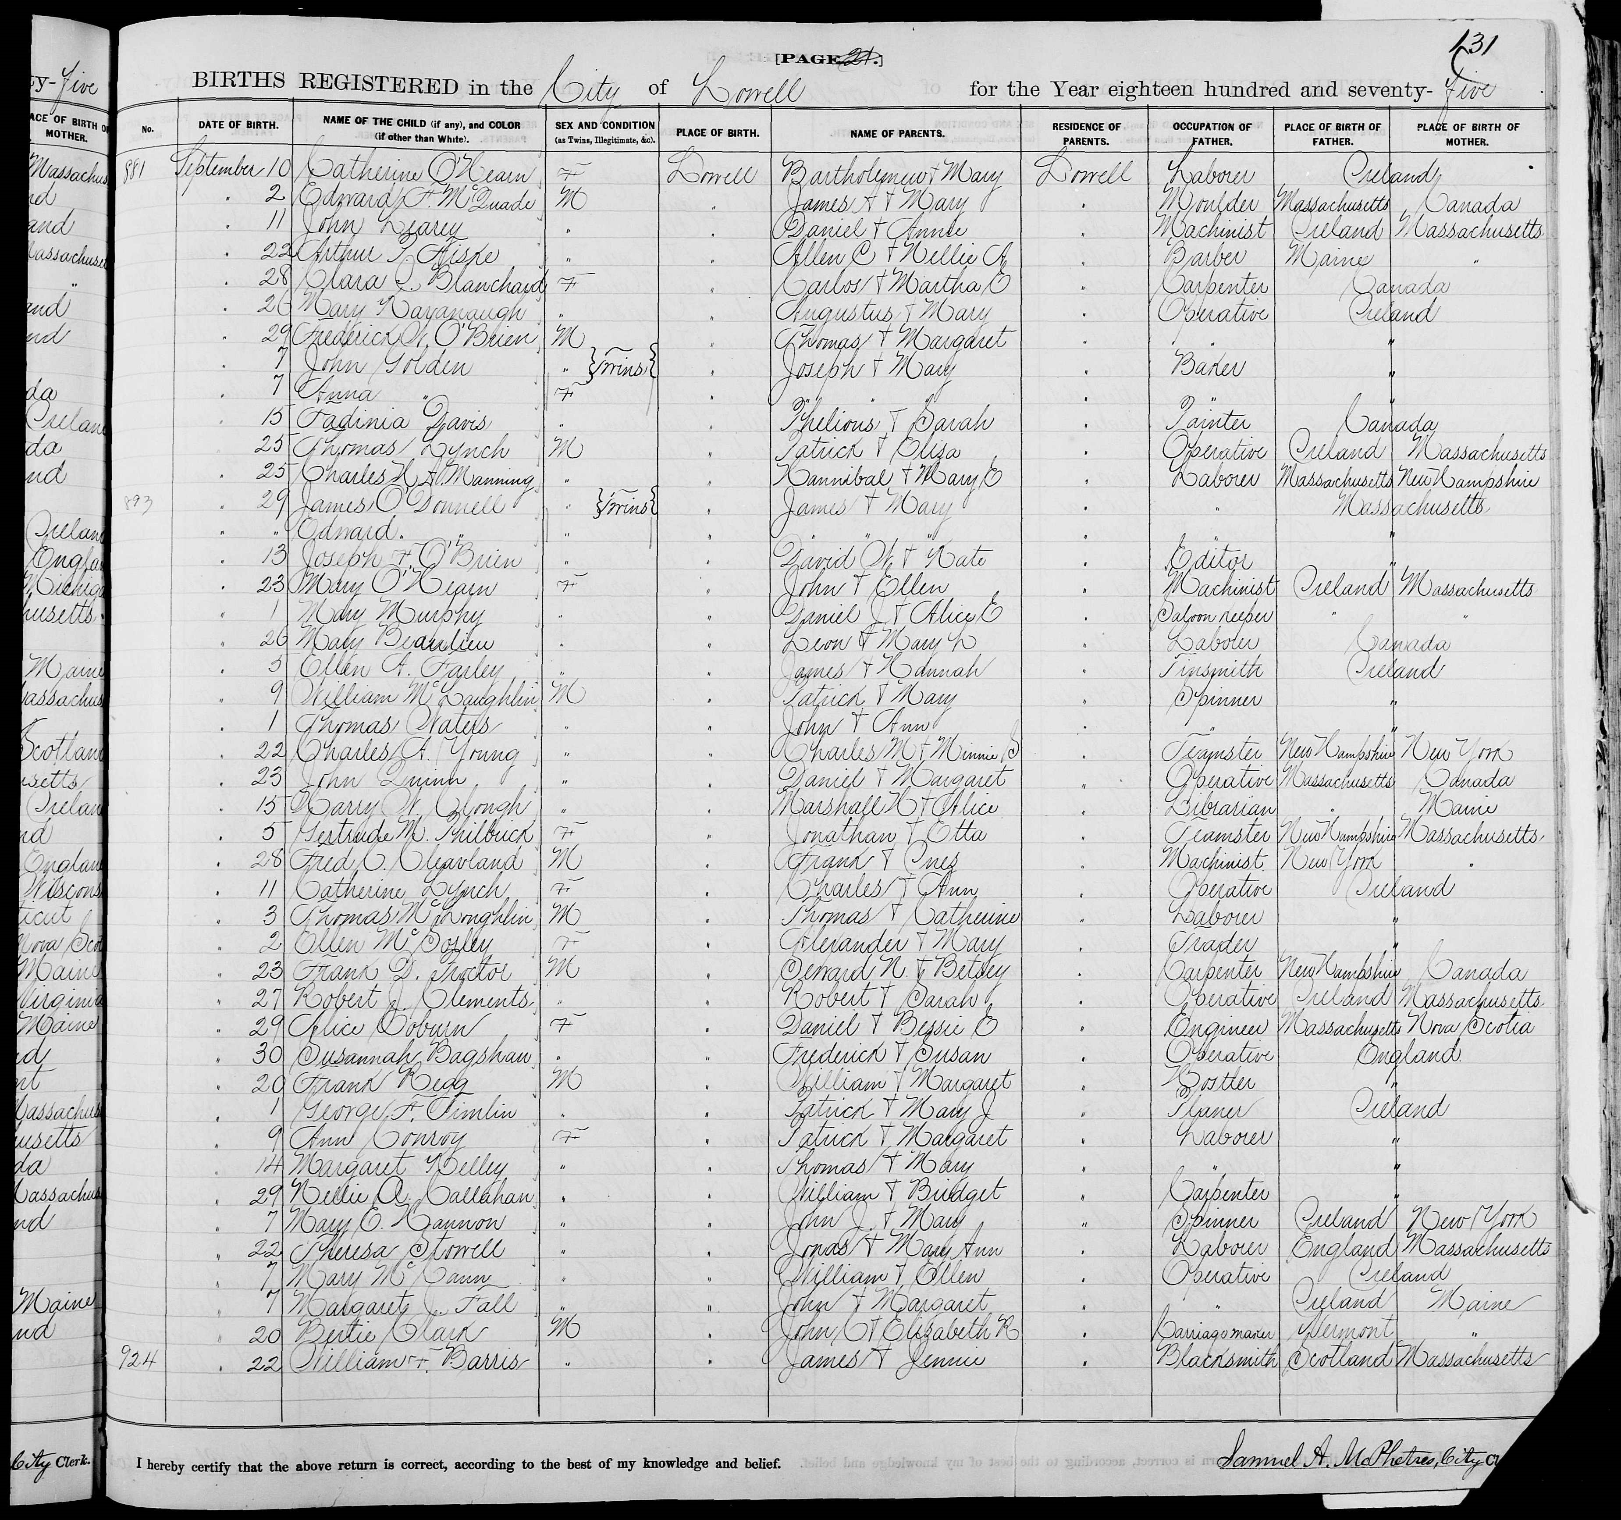 131
[PAGE 21.]
BIRTHS REGISTERED in the City of Lowell for the Year eighteen hundred and seventy-five
No. DATE OF BIRTH. NAME OF THE CHILD (if any), and COLOR (if other than White). SEX AND CONDITION (as Twins, Illegitimate, &c). PLACE OF BIRTH. NAME OF PARENTS. RESIDENCE OF PARENTS. OCCUPATION OF FATHER. PLACE OF BIRTH OF FATHER. PLACE OF BIRTH OF MOTHER.
881 September 10 Catherine O'Hearn F Lowell Bartholemew & Mary Lowell Laborer Ireland
" 2 Edward F. McQuade M " James A & Mary " Moulder Massachusetts Canada
" 11 John Leary " " Daniel & Annie " Machinist Ireland Massachusetts
" 22 Arthur " " Allen C & Nellie A " Barber Maine "
" 28 Clara I. Blanchard F " Carlos & Martha E " Carpenter Canada
" 26 Mary Kavanaugh " " Augustus & Mary " Operative Ireland
" 29 Frederick W. O'Brien M " Thomas & Margaret " " "
" 7 John Golden " } Twins { " Joseph & Mary " Baker "
" 7 Anna " F " " " " " "
" 15 Fadinia Davis " " Phelious & Sarah " Painter Canada
" 25 Thomas Lynch M " Patrick & Eliza " Operative Ireland Massachusetts
" 25 Charles H. H. Manning " " Hannibal & Mary E " Laborer Massachusetts New Hampshire
893 " 29 James O'Donnell " } Twins { " James & Mary " " Massachusetts
" " Edward " " " " " " " "
" 13 Joseph F. O'Brien " " David W. & Kate " Editor "
" 23 Mary O'Hearn F " John & Ellen " Machinist Ireland Massachusetts
" 1 Mary Murphy " " Daniel J. & Alice E " Saloon keeper " "
" 26 Mary Beaulieu " " Leon & Mary L " Laborer Canada
" 5 Ellen A. Farley " " James & Hannah " Tinsmith Ireland
" 9 William McLaughlin M " Patrick & Mary " Spinner "
" 1 Thomas Waters " " John & Ann " " "
" 22 Charles A. Young " " Charles M & Minnie S " Teamster New Hampshire New York
" 23 John Quinn " " Daniel & Margaret " Operative Massachusetts Canada
" 15 Harry W. Clough " " Marshall H & Alice " Librarian " Maine
" 5 Gertrude M. Philbrick F " Jonathan & Etta " Teamster New Hampshire Massachusetts
" 28 Fred C. Cleavland M " Frank & Inez " Machinist New York "
" 11 Catherine Lynch F " Charles & Ann " Operative Ireland
" 3 Thomas McLoughlin M " Thomas & Catherine " Laborer "
" 2 Ellen McSorley F " Alexander & Mary " Trader "
" 23 Frank D. Proctor M " Seward N. & Betsey " Carpenter New Hampshire Canada
" 27 Robert J. Clements " " Robert & Sarah " Operative Ireland Massachusetts
" 29 Alice Coburn F " Daniel & Bessie E " Engineer Massachusetts Nova Scotia
" 30 Susannah Bagshaw " " Frederick & Susan " Operative England
" 20 Frank Kegg M " William & Margaret " Hostler "
" 1 George F. Timlin " " Patrick & Mary J " Planer Ireland
" 9 Ann Conroy F " Patrick & Margaret " Laborer "
" 14 Margaret Kelley " " Thomas & Mary " " "
" 29 Nellie A. Callahan " " William & Bridget " Carpenter "
" 7 Mary E. Hannon " " John J. & Mary " Spinner Ireland New York
" 22 Theresa Stowell " " Jonas & Mary Ann " Laborer England Massachusetts
" 7 Mary McCann " " William & Ellen " Operative Ireland
" 7 Margaret J. Fall " " John & Margaret " " Ireland Maine
" 20 Bertie Clark M " John C & Elizabeth R " Carriagemaker Vermont "
924 " 22 William F. Barris " " James & Jennie " Blacksmith Scotland Massachusetts
I hereby certify that the above return is correct, according to the best of my knowledge and belief. Samuel A. McPhetres, City Cl
City Clerk.